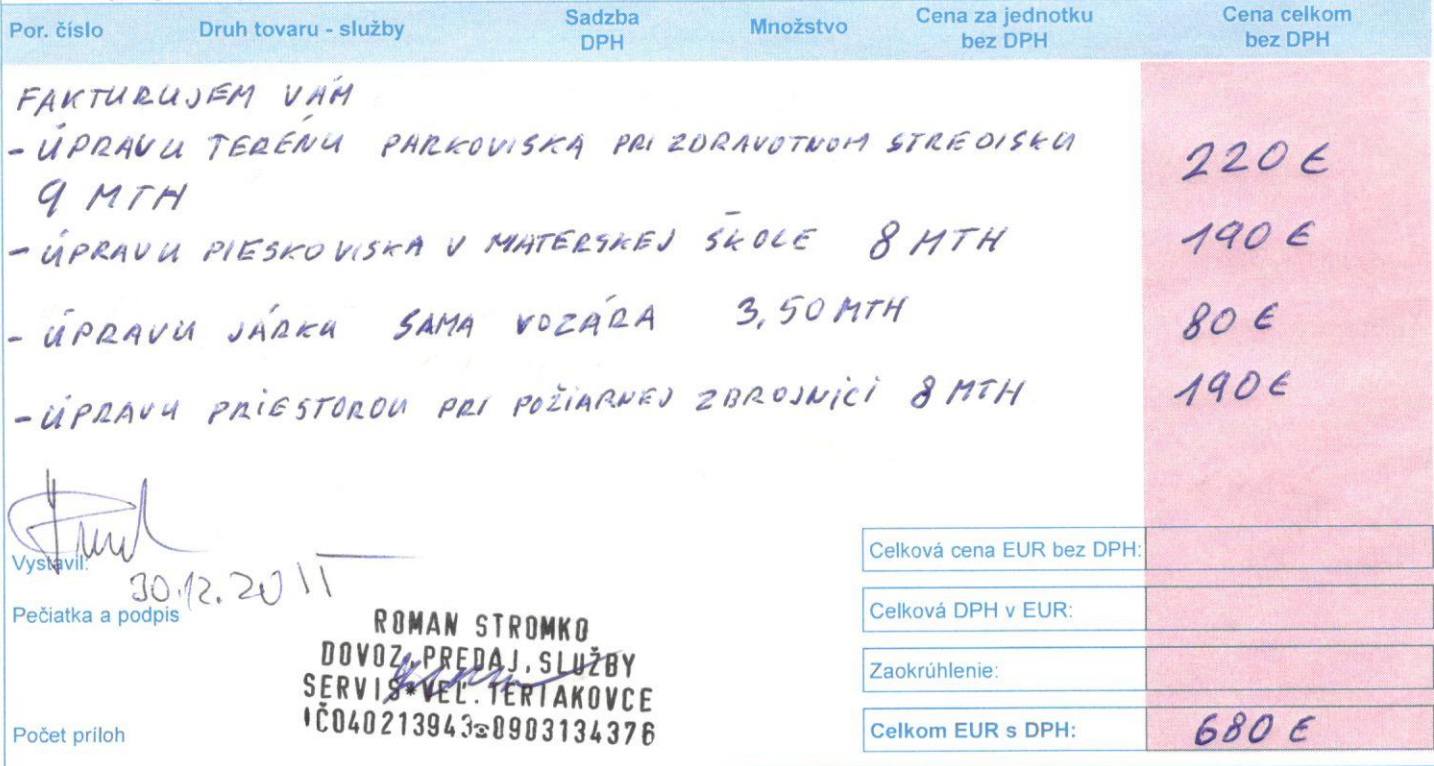 Por. číslo Druh tovaru - služby Sadzba DPH Množstvo Cena za jednotku bez DPH Cena celkom bez DPH
FAKTURUJEM VÁM
- ÚPRAVU TERÉNU PARKOVISKA PRI ZDRAVOTNOM STREDISKU 220 €
9 MTH
- ÚPRAVU PIESKOVISKA V MATERSKEJ ŠKOLE 8 MTH 190 €
- ÚPRAVU JÁRKU SAMA VOZÁRA 3,50 MTH 80 €
- ÚPRAVU PRIESTOROU PRI POŽIARNEJ ZBROJNICI 8 MTH 190 €
Celková cena EUR bez DPH:
Vystavil:
30.12.2011
Pečiatka a podpis
Celková DPH v EUR:
ROMAN STROMKO
DOVOZ,PREDAJ,SLUŽBY
SERVIS*VEĽ.TERIAKOVCE
IČO40213943☎0903134376
Zaokrúhlenie:
Počet príloh
Celkom EUR s DPH: 680 €